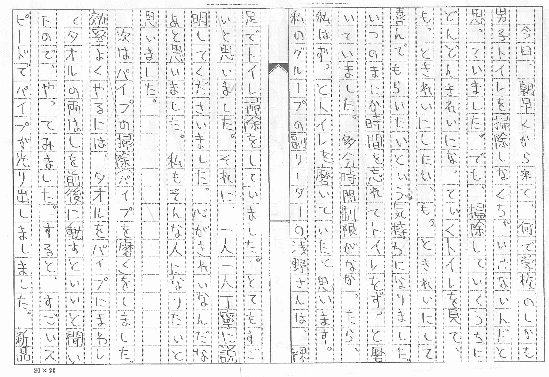 今日、朝早くから来て、何で学校のしかも
男子トイレを掃除しなくちゃいけないんだと
思っていました。でも、掃除していくうちに
どんどんきれいになっていくトイレを見て、
もっときれいにしたい、もっときれいにして
喜んでもらいたいという気持ちになりました。
いつのまにか時間を忘れてトイレをずっと磨
いていました。多分時間制限がなかったら、
私はずっとトイレを磨いていたと思います。
私のグループの副リーダーの浅野さんは、裸
足でトイレ掃除をしていました。とてもすご
いと思いました。それに、一人一人丁寧に説
明してくださいました。心がきれいなんだな
あと思いました。私もそんな人になりたいと
思いました。
次はパイプの掃除(パイプを磨く)をしました。
効率よくやるには、タオルをパイプにまわし
てタオルの両はしを前後に動すといいと聞い
たので、やってみました。すると、すごいス
ピードでパイプが光り出しました。新品
20×20